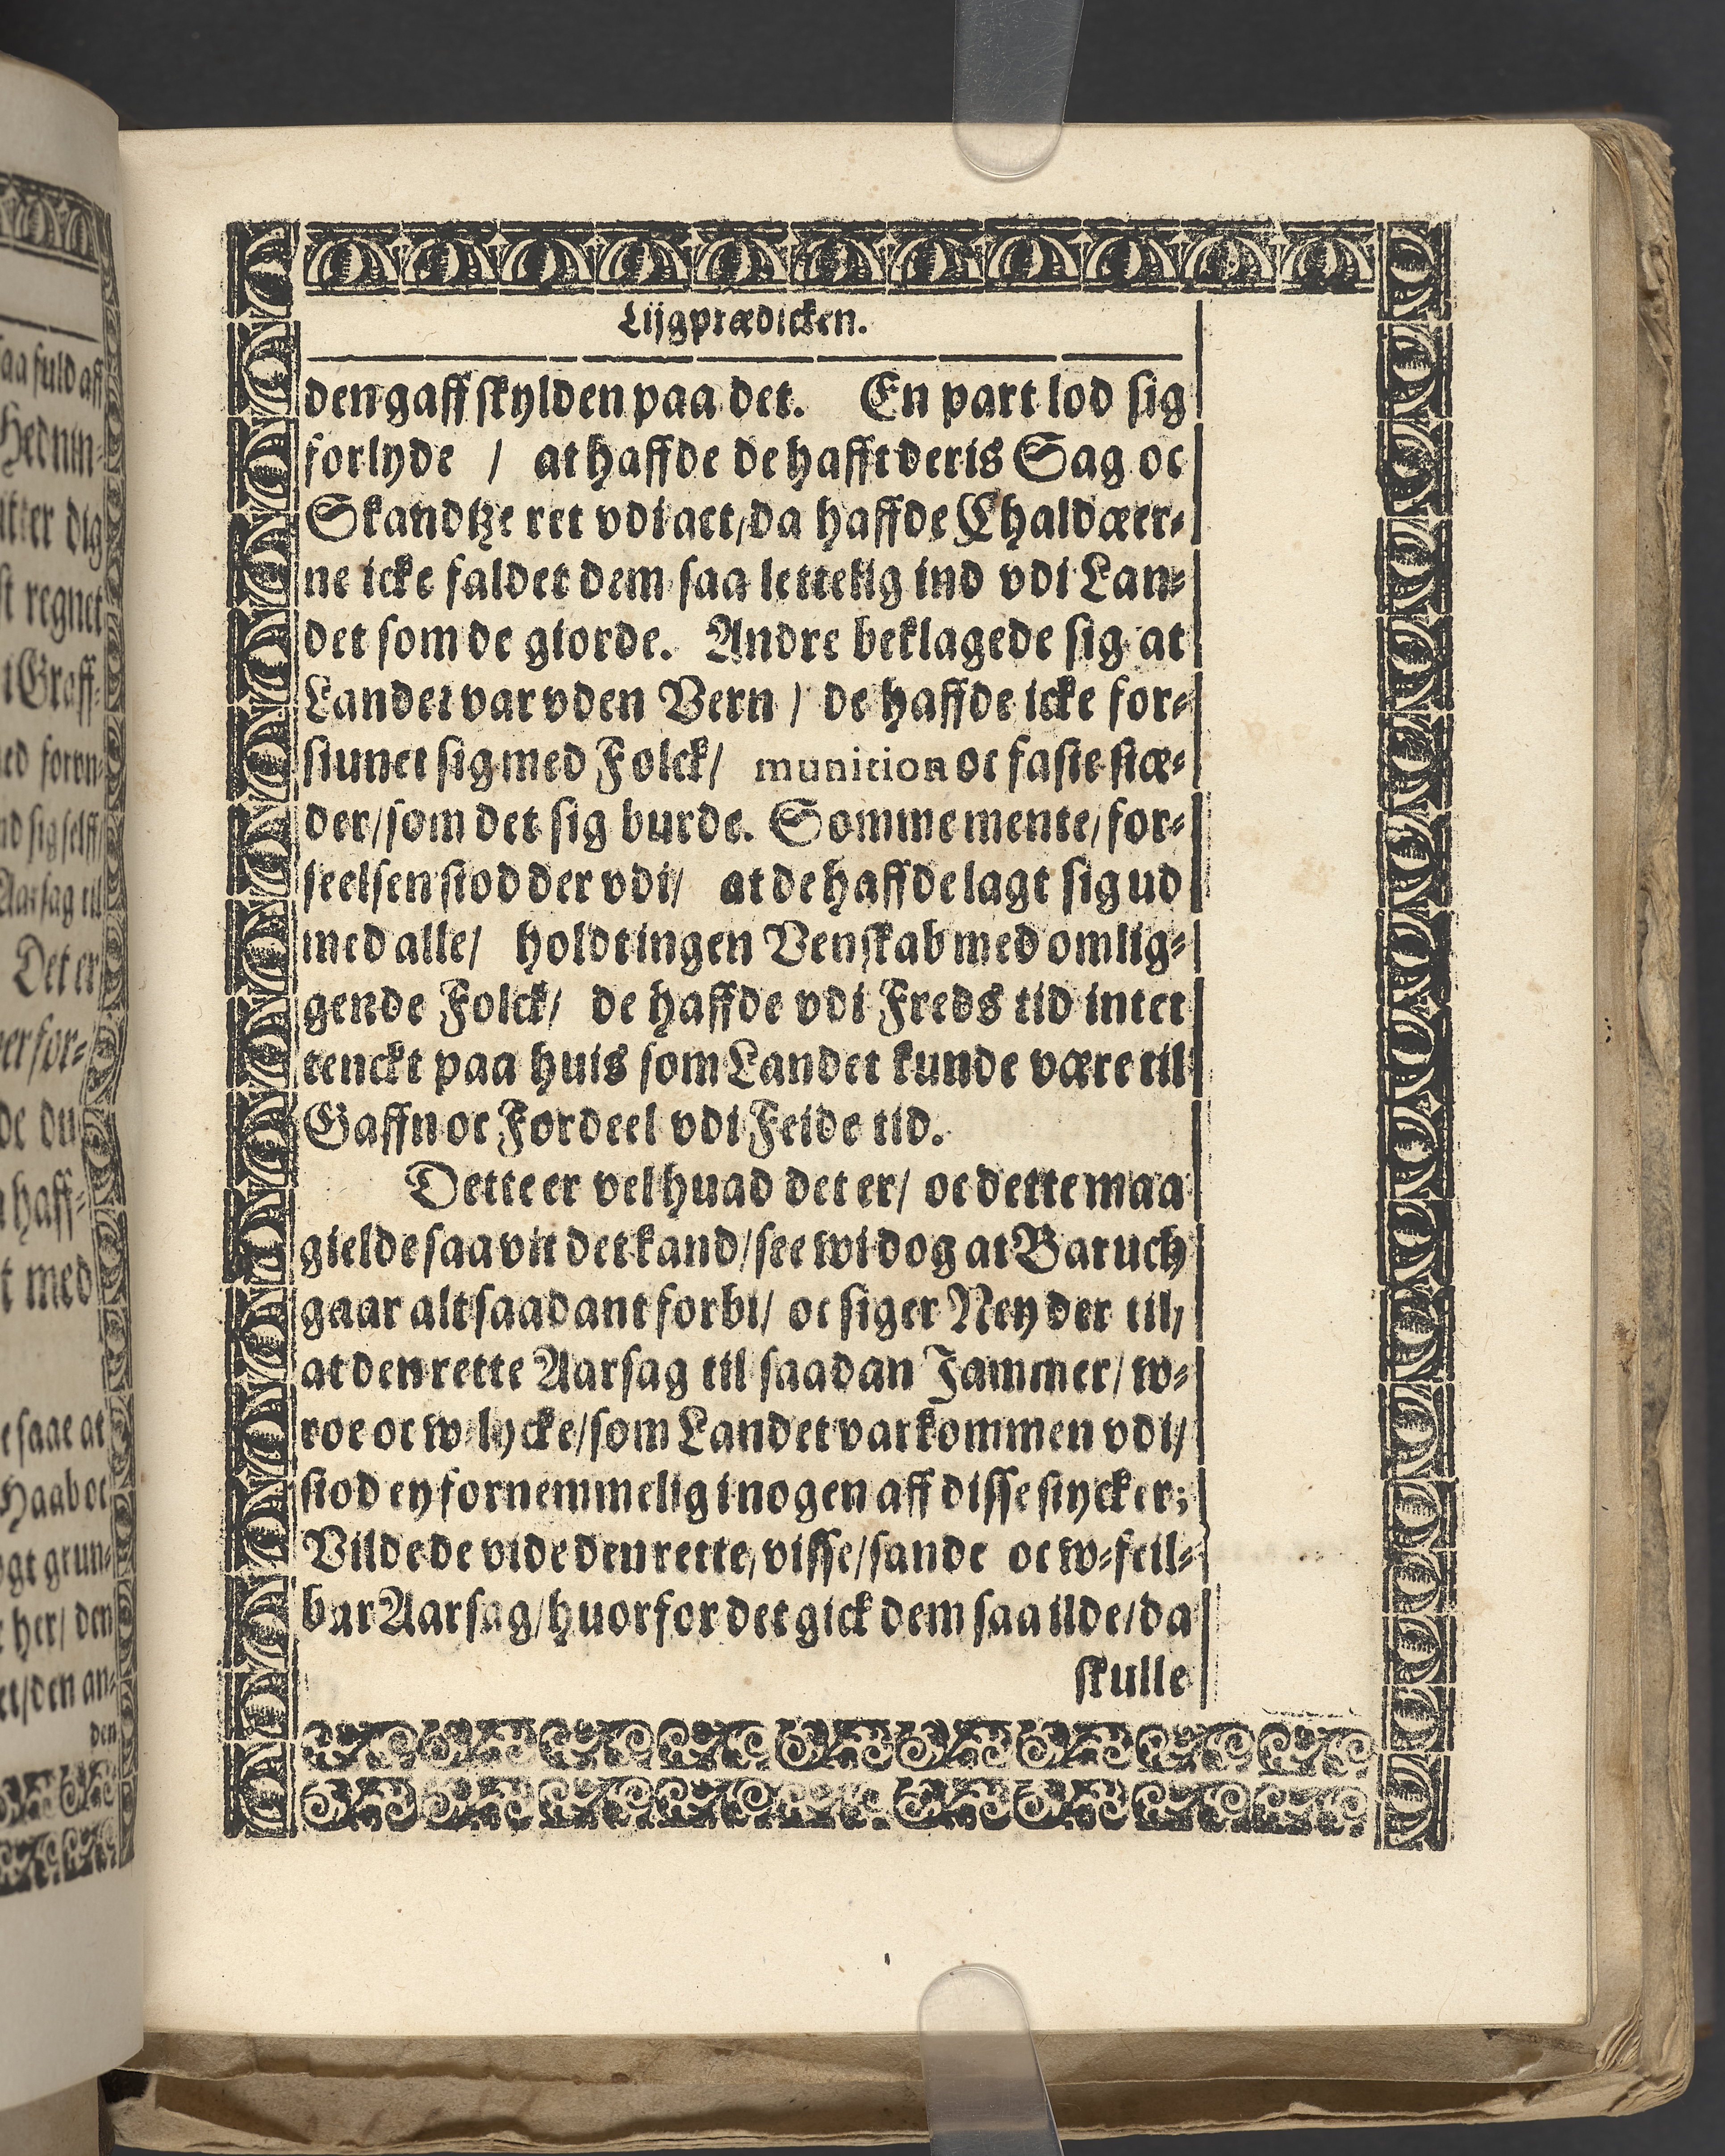 Lijgprædicken.
den gaff skylden paa det. En part lod sig
forlyde / at haffde de hafft deris Sag oc
Skandtze ret vdi act / da haffde Chaldæer-
ne icke faldet dem saa lettelig ind vdi Lan-
det som de giorde. Andre beklagede sig at
Landet var vden Vern / de haffde icke for-
siunet sig med Folck / munition oc faste stæ-
der / som det sig burde. Somme mente / for-
seelsen stod der vdi / at de haffde lagt sig ud
med alle / holdt ingen Venskab med omlig-
gende Folck / de haffde vdi Freds tid intet
tenckt paa huis som Landet kunde være til
Gaffn oc Fordeel vdi Feide tid.
Dette er vel huad det er / oc dette maa
gielde saa vit det kand / see wi dog at Baruch
gaar alt saadant forbi / oc siger Ney der til /
at den rette Aarsag til saadan Jammer / w-
roe oc w-lycke / som Landet var kommen vdi /
stod ey fornemmelig i nogen aff disse stycker;
Vilde de vide den rette / visse / sande oc w-feil-
bar Aarsag / huorfor det gick dem saa ilde / da
skulle